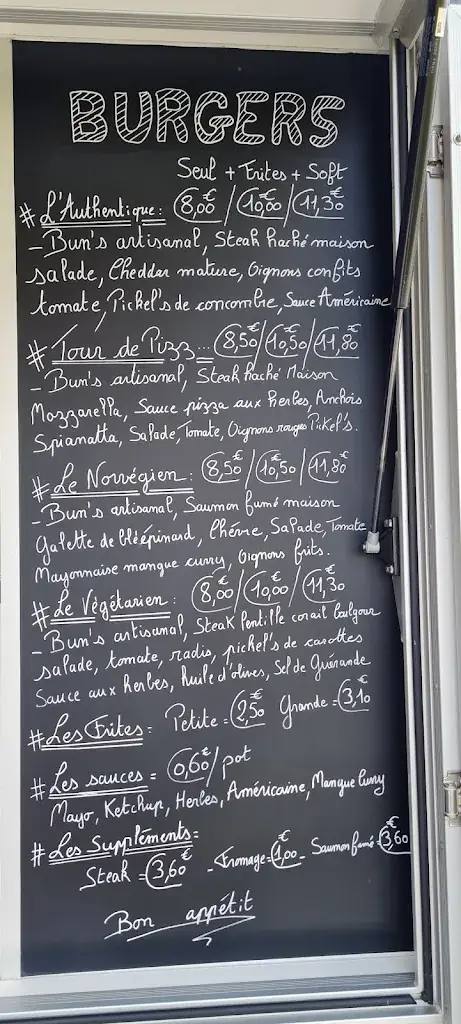 BURGERS
Seul + Frites + Soft
# L'Authentique : 8,00€ / 10,00€ / 11,30€
- Bun's artisanal, Steak haché maison
salade, Cheddar mature, Oignons confits
tomate, Pickel's de concombre, Sauce Américaine
# Tour de Pizz... 8,50€ / 10,50€ / 11,80€
- Bun's artisanal, Steak haché Maison
Mozzarella, Sauce pizza aux herbes, Anchois
Spianatta, Salade, Tomate, Oignons rouges Pickel's.
# Le Norvégien : 8,50€ / 10,50€ / 11,80€
- Bun's artisanal, Saumon fumé maison
Galette de blé épinard, Chèvre, Salade, Tomate
Mayonnaise mangue curry, Oignons frits.
# Le Végétarien : 8,00€ / 10,00€ / 11,30€
- Bun's artisanal, Steak lentille corail boulgour
salade, tomate, radis, pickel's de carottes
Sauce aux herbes, huile d'olives, Sel de Guérande
# Les Frites : Petite = 2,50€ Grande = 3,10€
# Les sauces = 0,60€/pot
Mayo, Ketchup, Herbes, Américaine, Mangue Curry
# Les Suppléments :
Steak = 3,60€ - Fromage = 1,00€ - Saumon fumé = 3,60€
Bon appétit